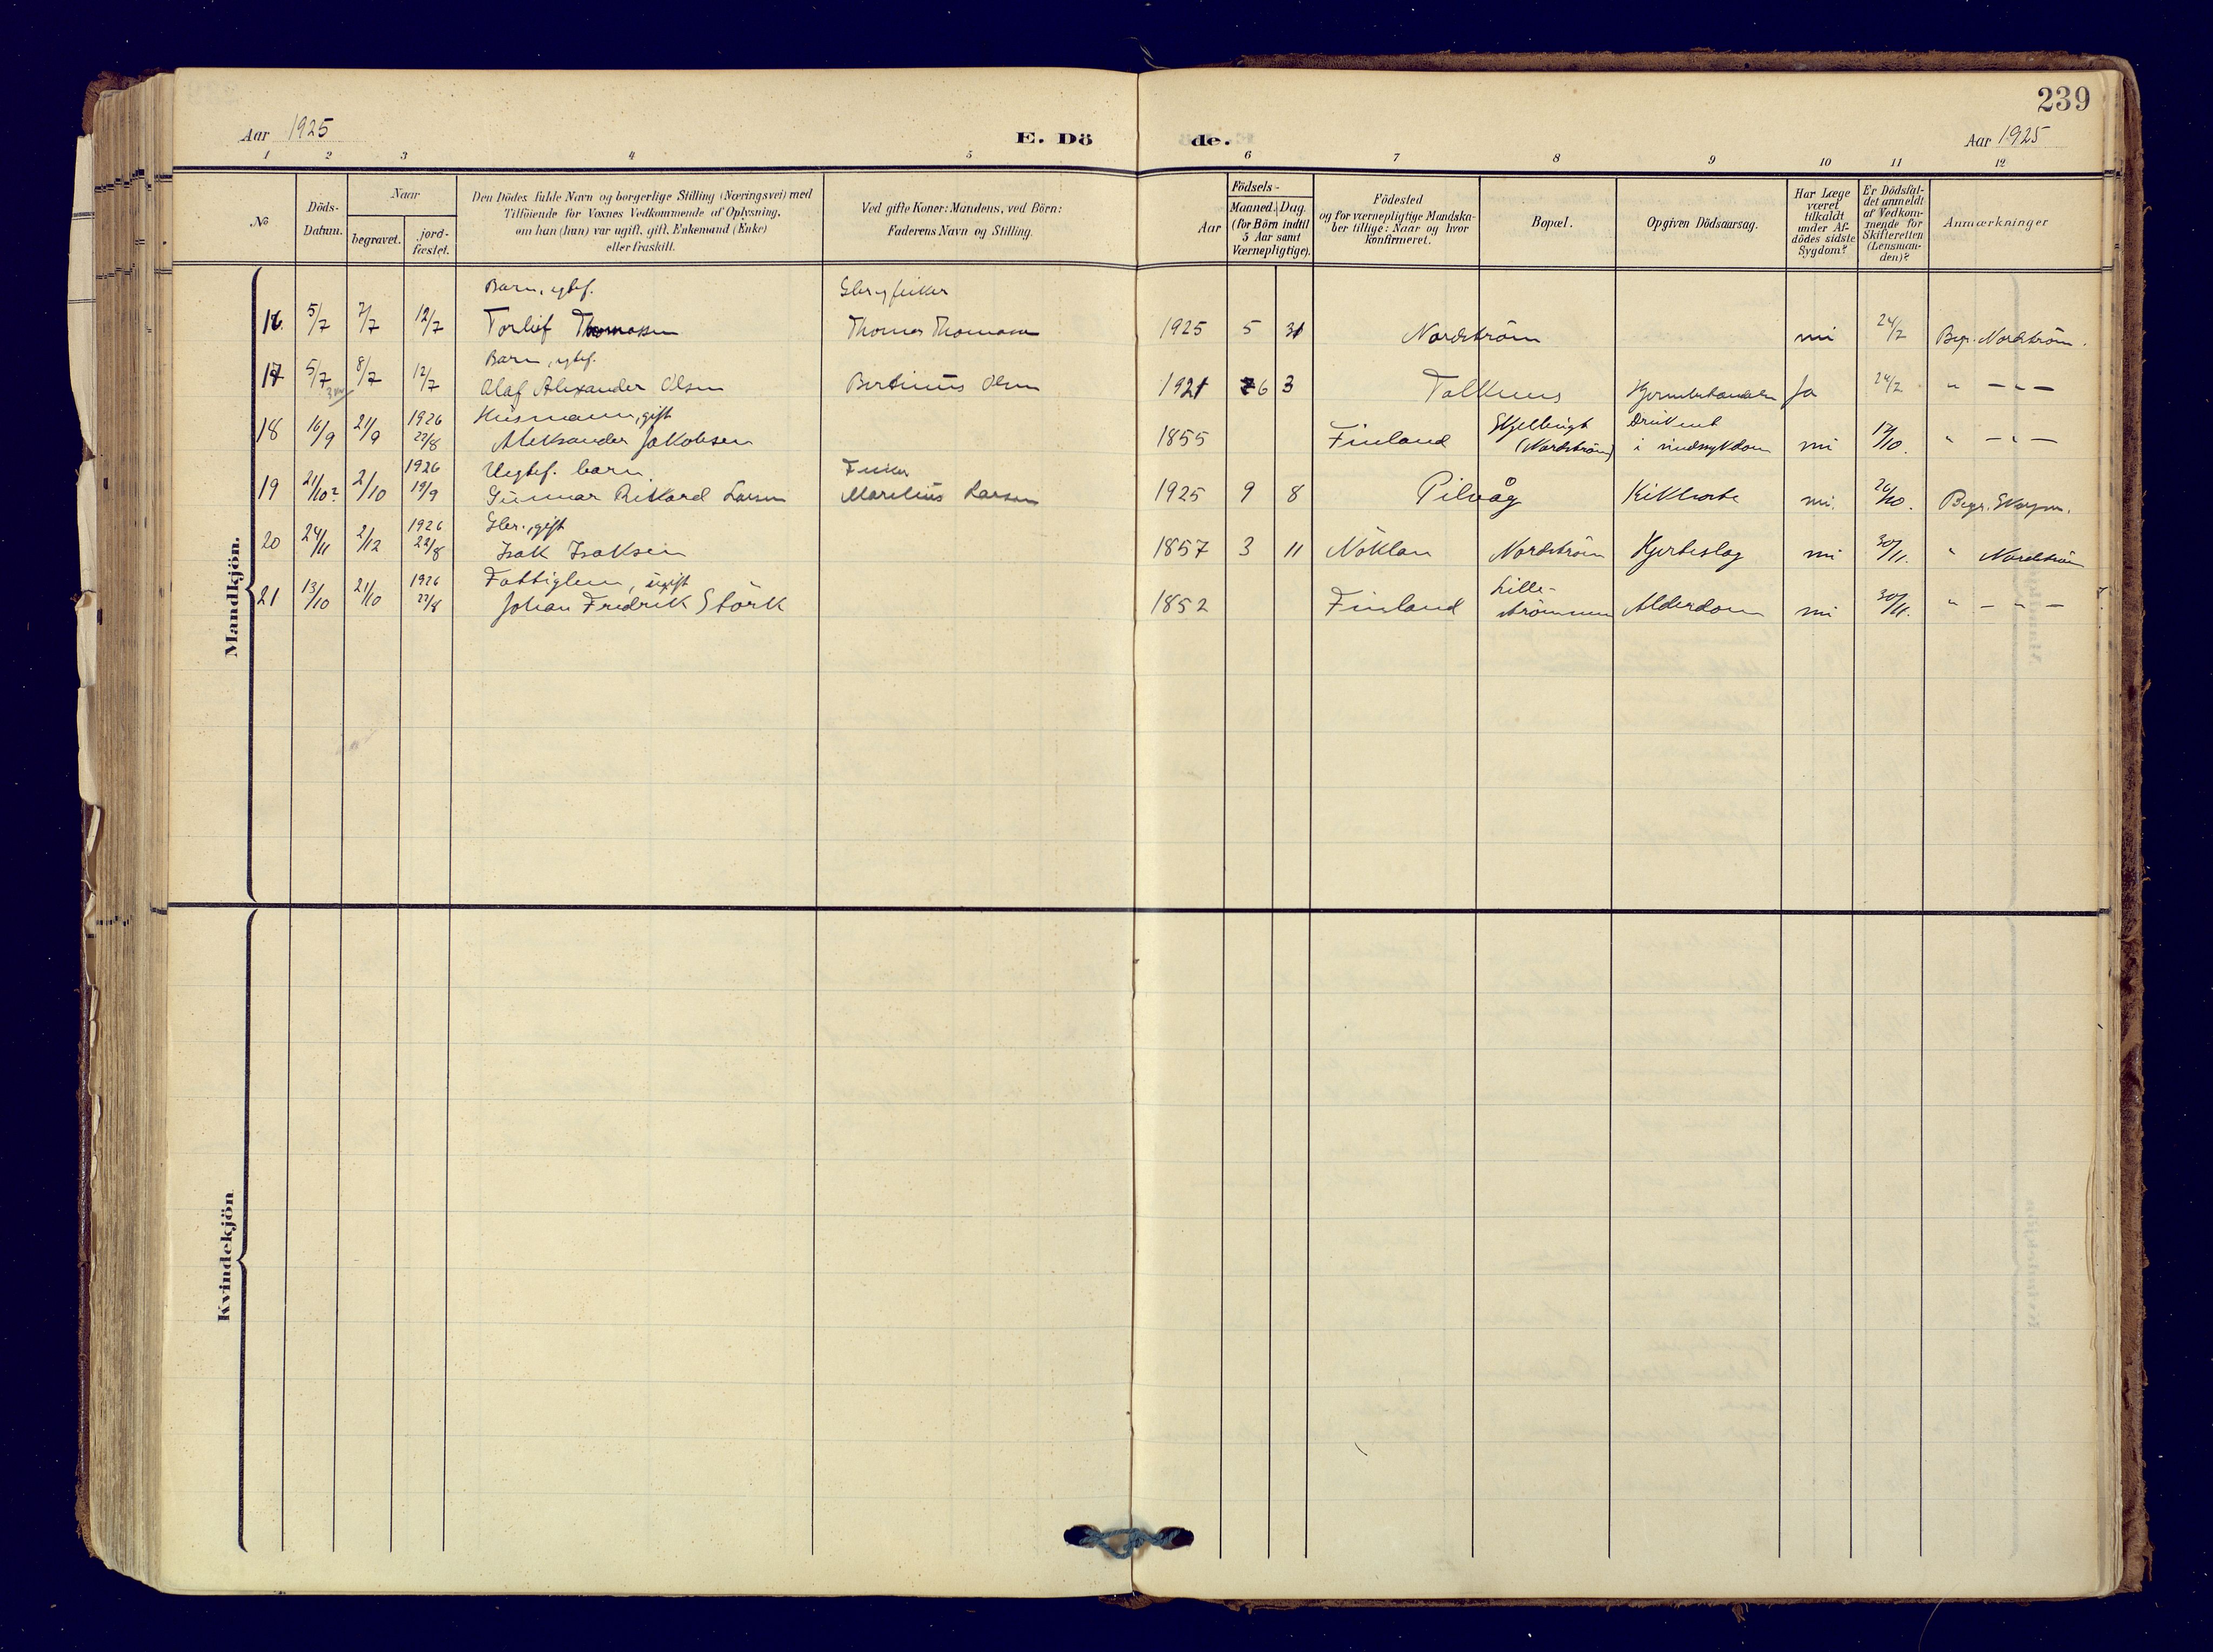 239
Aar 1925 E. Dö de. Aar 1925
1 2 3 4 5 6 7 8 9 10 11 12
№
Döds-
Datum.
Naar
begravet.
jord-
fæstet.
Den Dödes fulde Navn og borgerlige Stilling (Næringsvei) med
Tilföiende for Voxnes Vedkommende af Oplysning,
om han (hun) var ugift, gift, Enkemand (Enke)
eller fraskilt.
Ved gifte Koner: Mandens, ved Börn:
Faderens Navn og Stilling.
Födsels-
Aar
Maaned. Dag.
(for Börn indtil
5 Aar samt
Værnepligtige).
Födested
og for værnepligtige Mandska-
ber tillige: Naar og hvor
konfirmeret.
Bopæl.
Opgiven Dödsaarsag.
Har Læge
været
tilkaldt
under Af-
dödes sidste
Sygdom?
Er Dödsfal-
det anmeldt
af Vedkom-
mende for
Skifteretten
(Lensman-
den)?
Anmærkninger
Mandkjön.
Barn, egtef.
16. 5/7 7/7 12/7 Torlief Thomassen Thomas Thomassen 1925 5 31 Nordström nei 24/7 Begr. Nordström.
Barn, egtef.
17 5/7 8/7 12/7 Olaf Alexander Olsen Bertinus Olsen 1921 6 3 Ja 24/7 " — " —
1926 Husmann, gift
18 16/9 21/9 22/8 Aleksander Jakobsen 1855 Finland (Nordström) Druknet i sindssykdom nei " — " —
1926 Uegtef. barn Fisker
19 21/10? 2/10 19/9 Gunnar Rikard Larsen Marelius Larsen 1925 9 8 Pilvåg Kikhoste nei. 26/10. Begr.
1926 Gbr., gift
20 24/11 2/12 22/8 Isak Isaksen 1857 3 11 Nöklan Nordström Hjerteslag nei 30/11. " Nordström
1926 Fattiglem, ugift
21 13/10 21/10 22/8 Johan Fredrik Störk 1852 Finland Lille-
strömmen Alderdom nei 30/11. " — " —
Kvindekjön